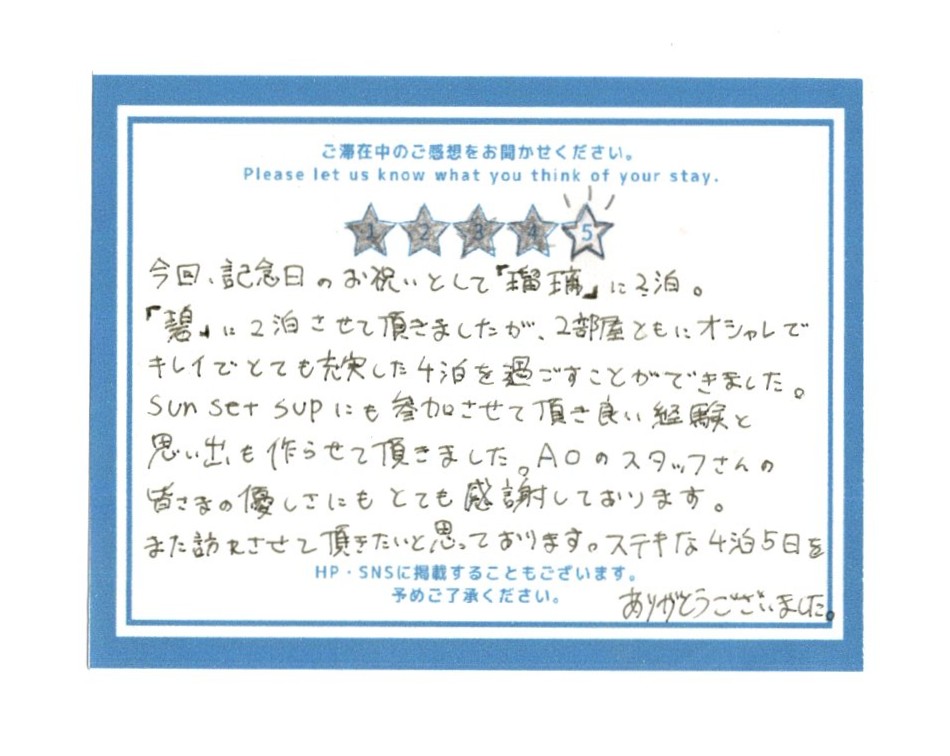 ご滞在中のご感想をお聞かせください。
Please let us know what you think of your stay.
1 2 3 4 5
今回、記念日のお祝いとして『瑠璃』に2泊。
『碧』に2泊させて頂きましたが、2部屋ともにオシャレで
キレイでとても充実した4泊を過ごすことができました。
sun set supにも参加させて頂き良い経験と
思い出も作らせて頂きました。AOのスタッフさんの
皆さまの優しさにもとても感謝しております。
また訪れさせて頂きたいと思っております。ステキな4泊5日を
HP・SNSに掲載することもございます。
予めご了承ください。
ありがとうございました。